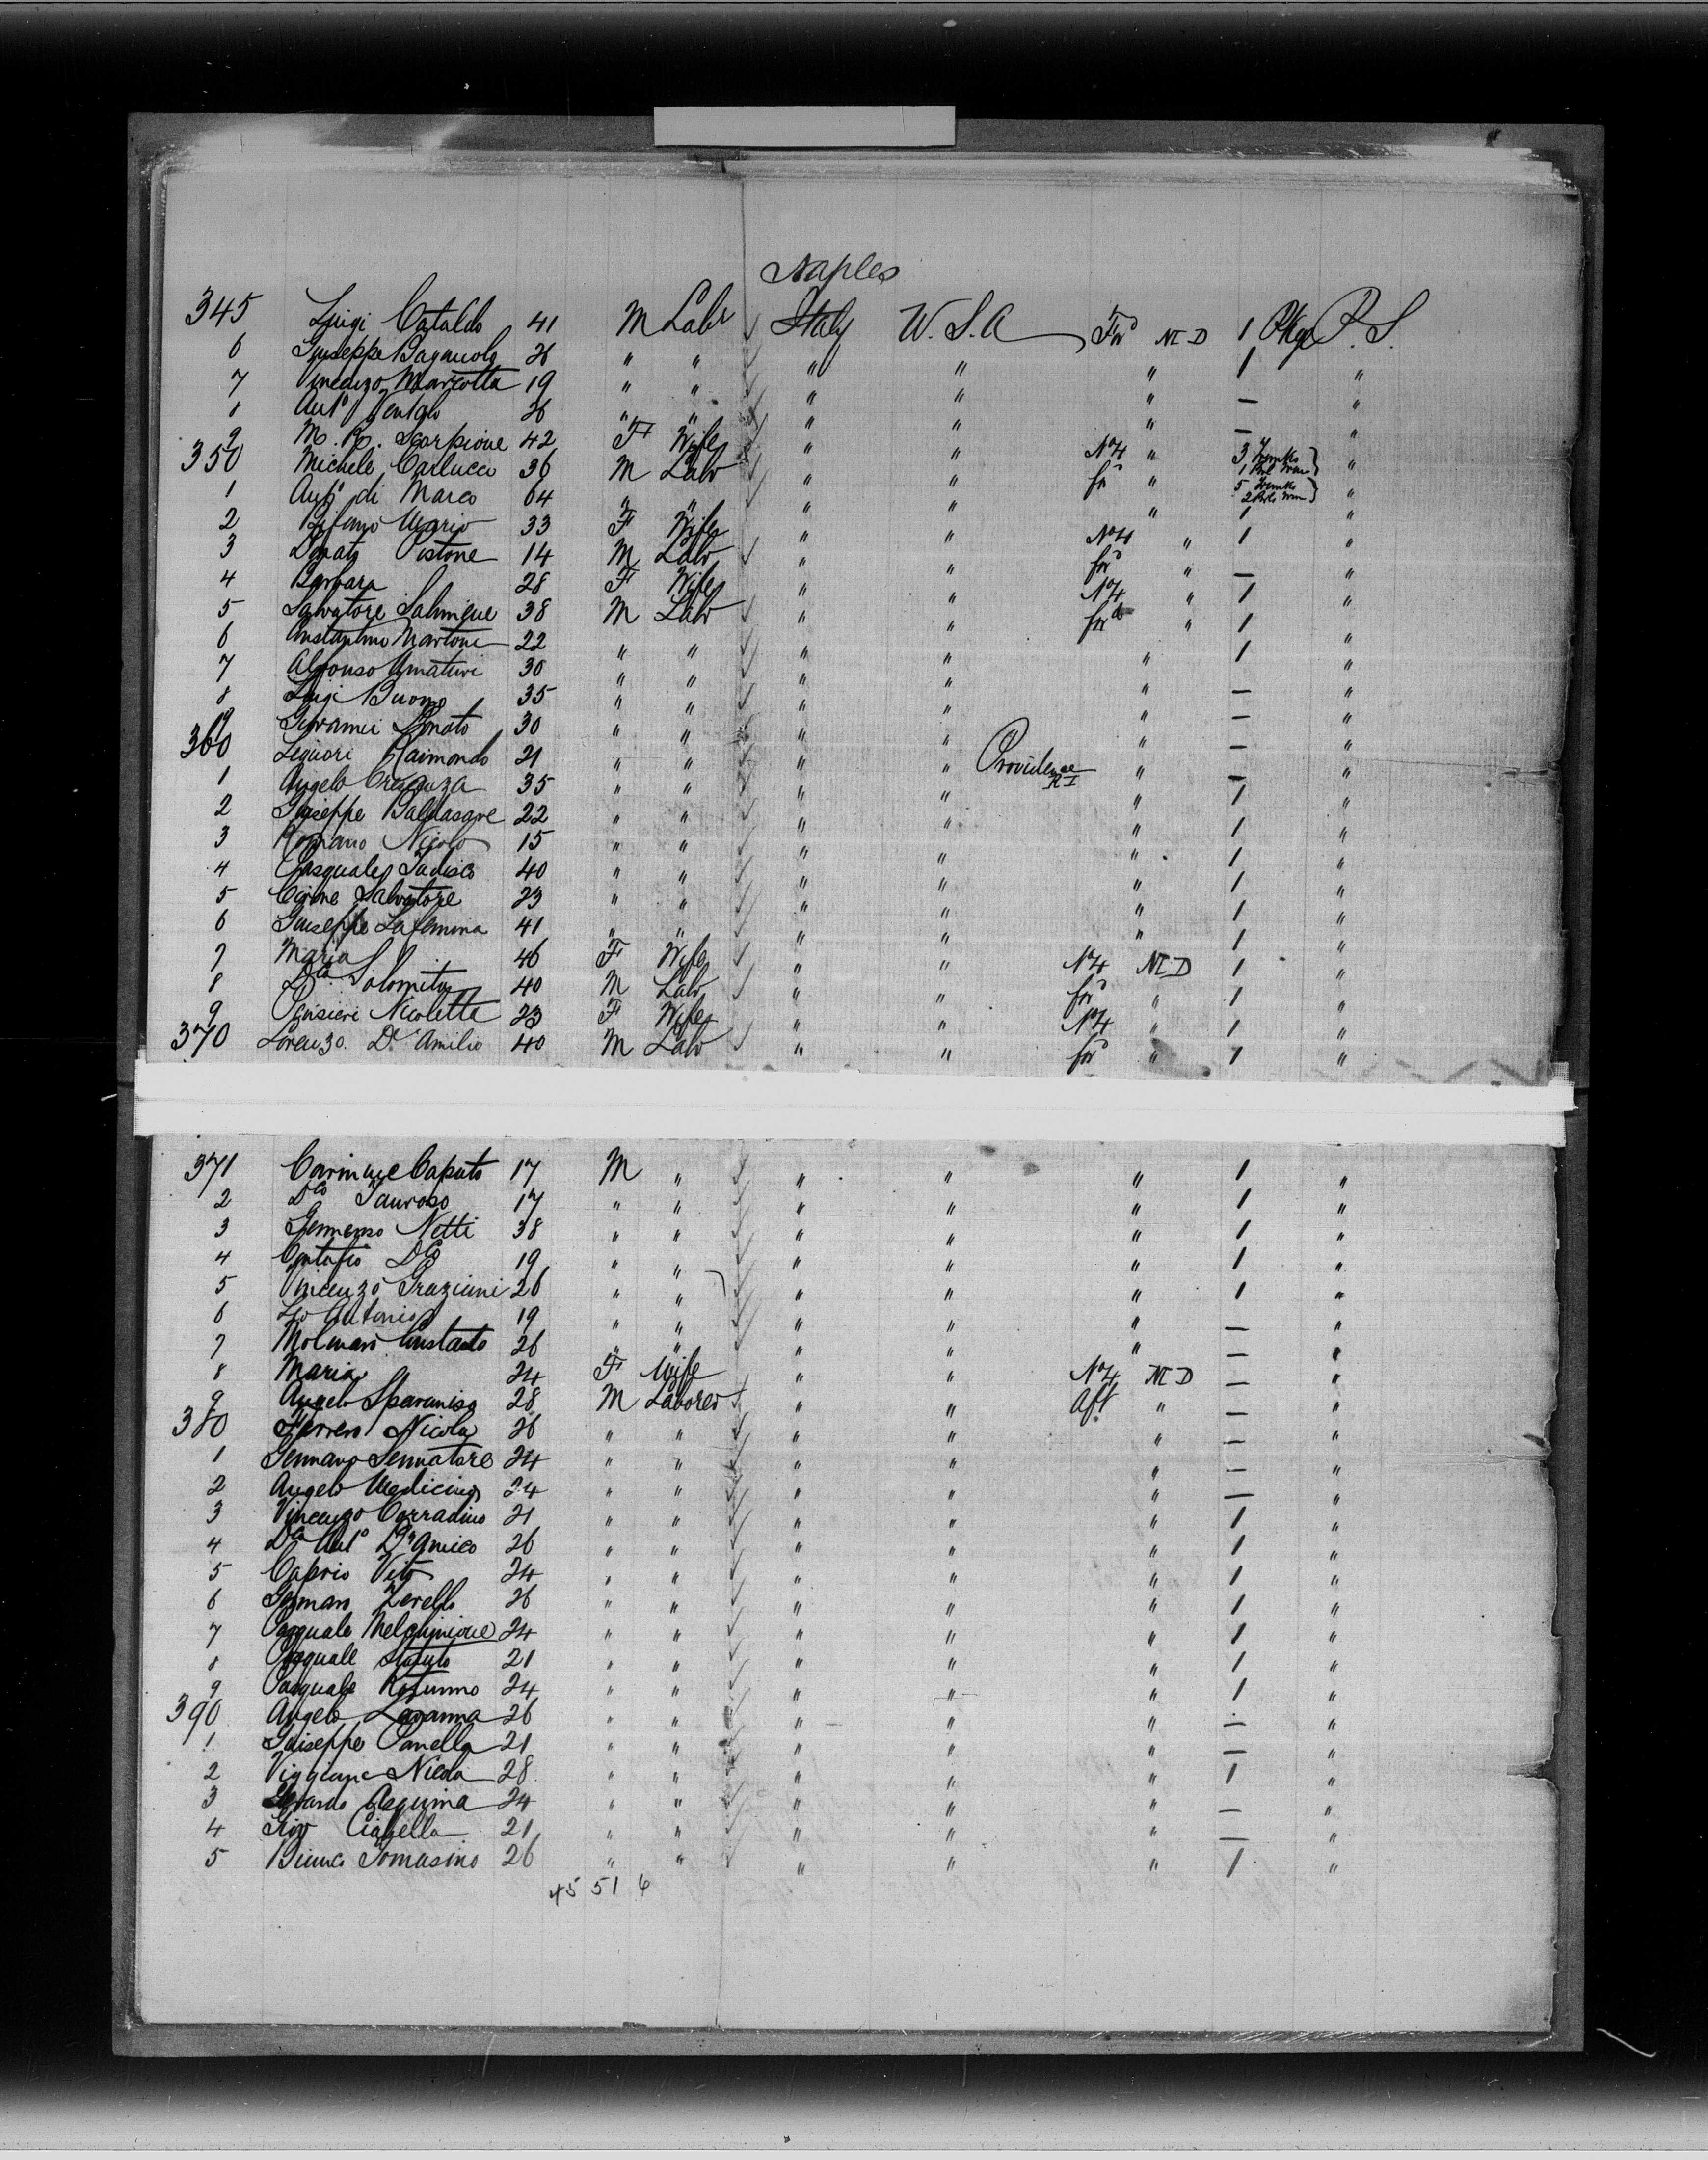 Naples
345 Luigi Cataldo 41 M Labr Italy U.S.A Fwd N D 1 Pkge P. S.
6 Giuseppe Bagnuolo 26 " " " " " 1 "
7 Vincenzo Marcotta 19 " " " " " — "
8 Anto 26 " " " " " — "
9 M. R. Scarpione 42 F Wife " " No 4 " 3 Trunks "
350 Michele Carlucci 36 M Labr " " for " 5 Trunks "
1 Anto di Marco 64 " " " " " 1 "
2 33 F Wife " " No 4 " 1 "
3 Donato Pistone 14 M Labr " " for " — "
4 Barbara 28 F Wife " " No 4 " 1 "
5 Salvatore 38 M Labr " " for " 1 "
6 Martone 22 " " " " " 1 "
7 Alfonso Amaturi 30 " " " " " — "
8 Luigi Buono 35 " " " " " — "
9 Donato 30 " " " " " — "
360 Liguori Raimondo 21 " " " " Providence R I " — "
1 Angelo 35 " " " " " 1 "
2 Giuseppe Baldasare 22 " " " " " 1 "
3 Romano Nicolo 15 " " " " " 1 "
4 Pasquale 40 " " " " " 1 "
5 Salvatore 23 " " " " " 1 "
6 Giuseppe Lafemina 41 " " " " " 1 "
7 Maria 46 F Wife " " No 4 N D 1 "
8 Do Solomita 40 M Labr " " for " 1 "
9 Pensieri Nicoletta 23 F Wife " " No 4 " 1 "
370 Lorenzo D'Amilio 40 M Labr " " for " 1 "
371 Carmine Caputo 17 M " " " " 1 "
2 Do Tauroso 17 " " " " " 1 "
3 Netti 38 " " " " " 1 "
4 Do 19 " " " " " 1 "
5 Vincenzo Graziani 26 " " " " " 1 "
6 Antonio 19 " " " " " — "
7 Molinaro 26 " " " " " — "
8 Maria 24 F Wife " " No 4 N D — "
9 Angelo Sparanisa 28 M Laborer " " Aft " — "
380 Ferrero Nicola 26 " " " " " — "
1 Gennaro Sennatore 24 " " " " " — "
2 Angelo Medicino 24 " " " " " — "
3 Vincenzo Corradino 21 " " " " " 1 "
4 Do Anto D'Amico 26 " " " " " 1 "
5 Caprio Vito 24 " " " " " 1 "
6 Zerello 26 " " " " " 1 "
7 Pasquale Melchiniore 24 " " " " " 1 "
8 Pasquale Statuto 21 " " " " " 1 "
9 Pasquale Rotunno 24 " " " " " 1 "
390 Angelo Lavanna 26 " " " " " — "
1 Giuseppe Panella 21 " " " " " — "
2 Viggiano Nicola 28 " " " " " 1 "
3 24 " " " " " — "
4 Ciafella 21 " " " " " — "
5 Bianco Tomasino 26 " " " " " 1 "
45 51 6